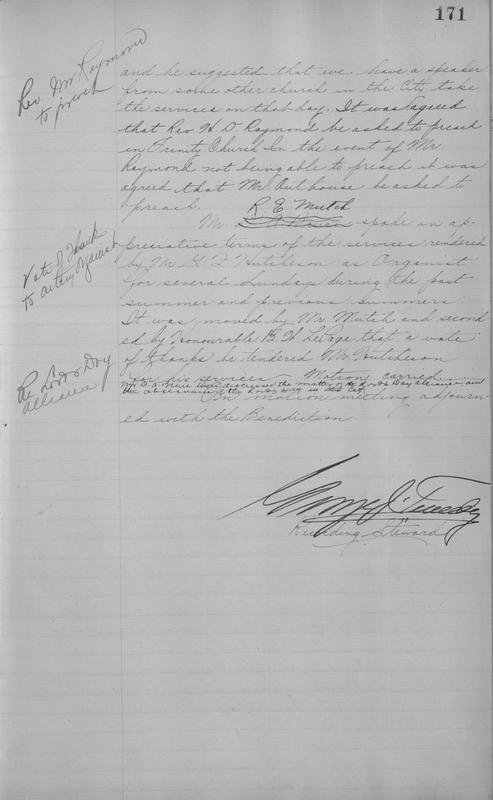 171
Rev. Mr Raymond
to preach
and he suggested that we have a speaker
from some other church in the City take
the services on that day. It was agreed
that Rev H. D. Raymond be asked to preach
in Trinity Church In the event of Mr.
Raymond not being able to preach it was
agreed that Mr. Outhouse be asked to
preach.
R. E. Mutch
Mr. spoke in ap-
Vote of Thanks
to acting Organist
preciative terms of the services rendered
by Mr. Hutcheson as Organist
for several Sundays during the past
summer and previous summers.
It was moved by Mr Mutch and second
ed by Honourable B. W LePage that a vote
of thanks be tendered Mr. Hutcheson
Re Lord's Day
alliance
for his services - Motion carried
discussed the matter of the Lord's Day alliance and
the observance of the Lord's Day in this City.
On motion meeting adjourn
ed with the Benediction.
Tweedy
Recording Steward